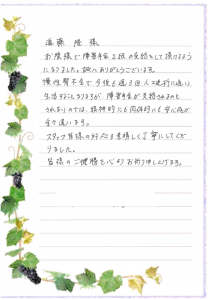 遠藤 隆 様
お陰様で障害年金2級の受給をして頂けるよう
になりました。誠にありがとうございます。
慢性腎不全で今後も週3回人工透析に通い
生活することになりますが、障害年金が受給されるのと
されないのでは、精神的にも肉体的にも安心感が
全く違います。
スタッフ皆様の対応も素晴しく丁寧にしてくだ
りました。
皆様のご健勝を心よりお祈り申し上げます。